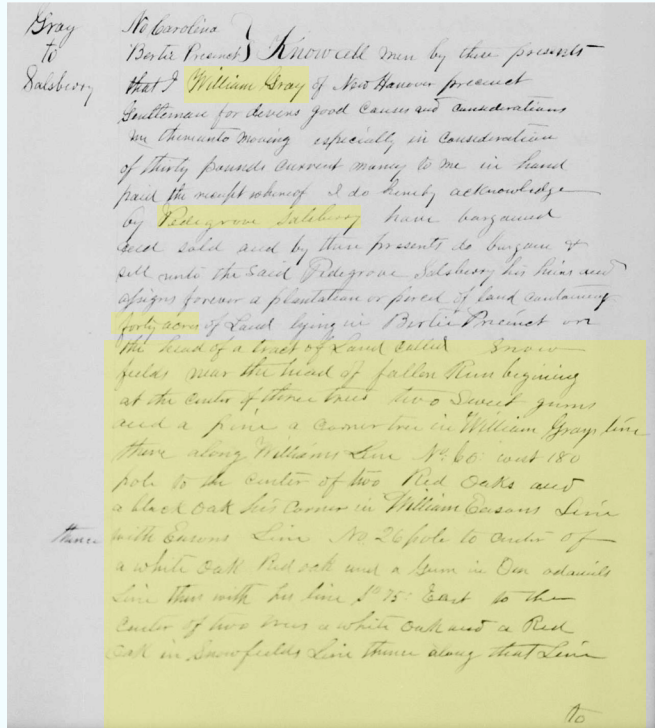 Gray
to
Salsberry
No Carolina
Bertie Precinct } Know all men by these presents
that I William Gray of New Hanover precinct
Gentleman for divers good Causes and considerations
me thereunto moving especially in consideration
of thirty pounds current money to me in hand
paid the receipt whereof I do hereby acknowledge
by Pedegrove Salsberry have bargained
and sold and by these presents do bargain &
sell unto the said Pedegrove Salsberry his heirs and
assigns forever a plantation or parcel of land containing
forty acres of Land lying in Bertie Precinct on
the head of a tract of Land called Snow
fields near the head of fallen Run begining
at the center of three trees two Sweet gums
and a pine a corner tree in William Grays line
thence along Williams Line No. 60: west 180
pole to the center of two Red Oaks and
a black oak his corner in William Easons Line
thence with Easons Line No 26 pole to center of
a white oak Red oak and a Gum in
Line thus with his line So 75: East to the
center of two trees a white oak and a Red
oak in Snowfields Line thence along that Line
to